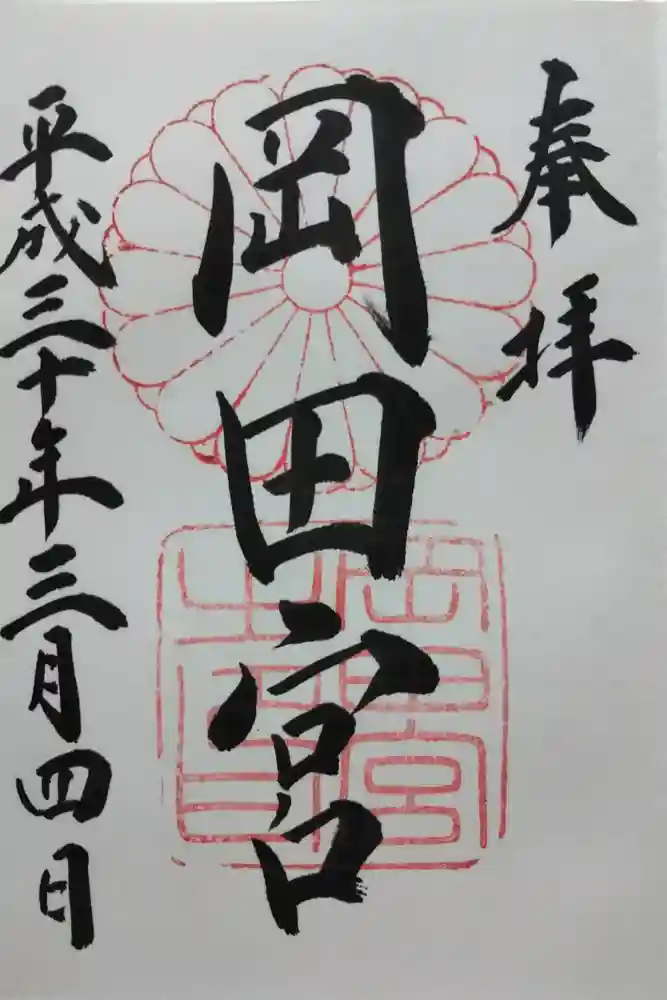 奉拝
岡田宮
平成三十年三月四日
岡田宮